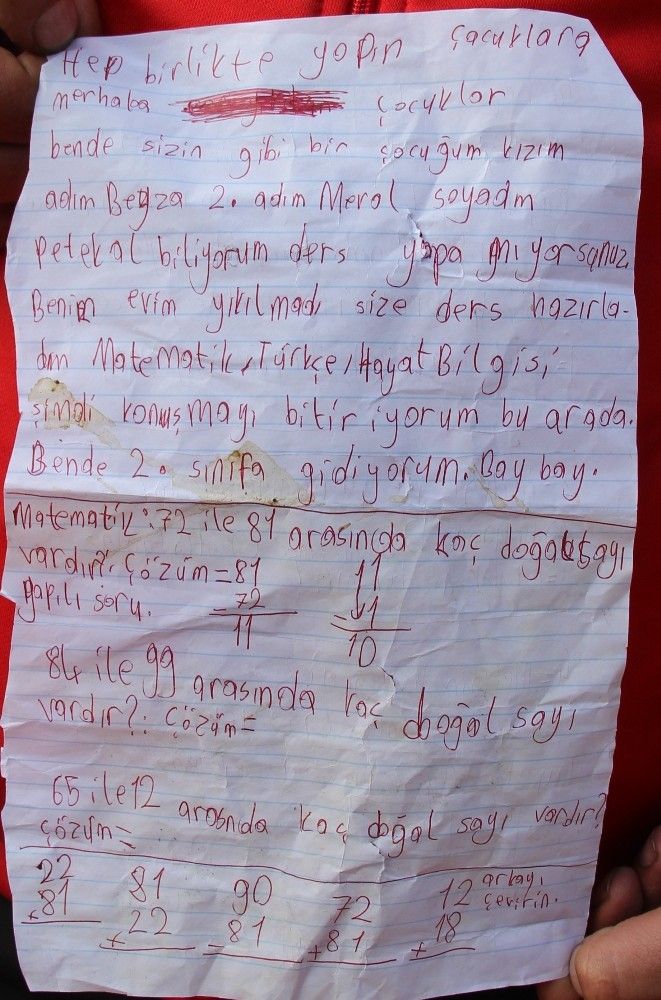 Hep birlikte yapın çocuklara
merhaba çocuklar
bende sizin gibi bir çocuğum kızım
adım Beyza 2. adım Meral soyadm
petekal biliyorum ders yapa mıyorsanuz
Benim evim yıkılmadı size ders hazırla-
dım Matematik, Türkçe, Hayat Bilgisi,
şimdi konuşmayı bitir iyorum bu arada.
Bende 2. sınıfa gidiyorum. Bay bay.
Matematik: 72 ile 81 arasında kaç doğal sayı
vardır?: çözüm = 81 11
yapılı soru. - 72 - 1
11 10
84 ile 99 arasında kaç doğal sayı
vardır?: çözüm =
65 ile 12 arasnıda kaç doğal sayı vardır?
çözüm =
22 81 90 72 12 arkayı
+81 +22 - 81 +81 +18 çevirin.